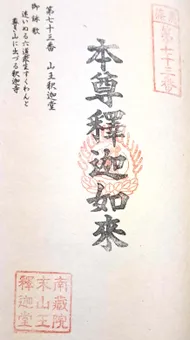 第七十三番
本尊釋迦如來
第七十三番 山王釈迦堂
御詠歌
迷いぬる六道衆生すくわんと
尊き山に出づる釈迦寺
南蔵院
末山王
釋迦堂